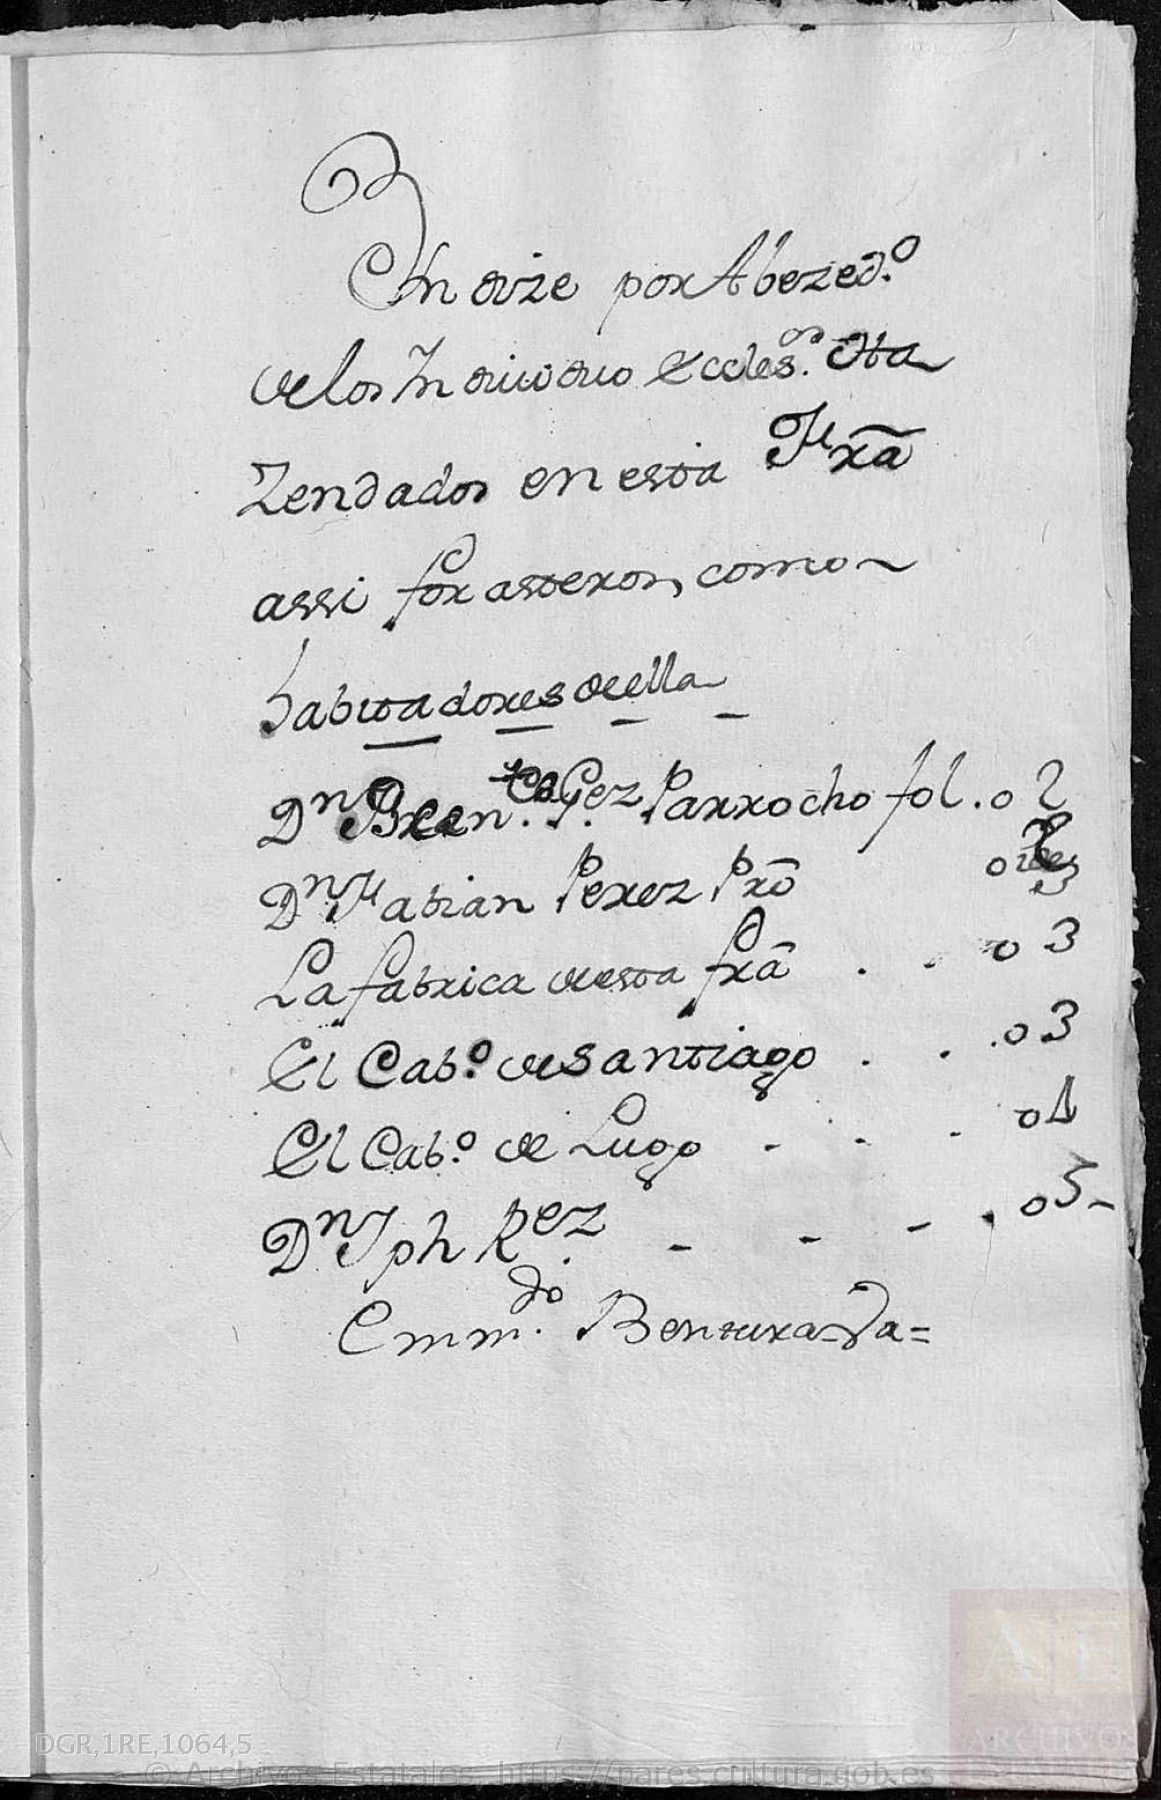 Yndize por Abezed.º
de los Yndividuo Eccles.os Ha
zendados en esta Frã
assi forasteros, como
habitadores de ella
Dn Ben.to Pez Parrocho fol. 02
Dn Fabian Perez Prō
La fabrica de esta frã . . 03
El Cab.º de Santiago . . . 03
El Cab.º de Lugo - - - 04
Dn Jph Rez - - - . 05-
Emm.do Bentura=Va=
DGR,1RE,1064,5
AE
ARCHIVOS
© Archivos Estatales, https://pares.cultura.gob.es